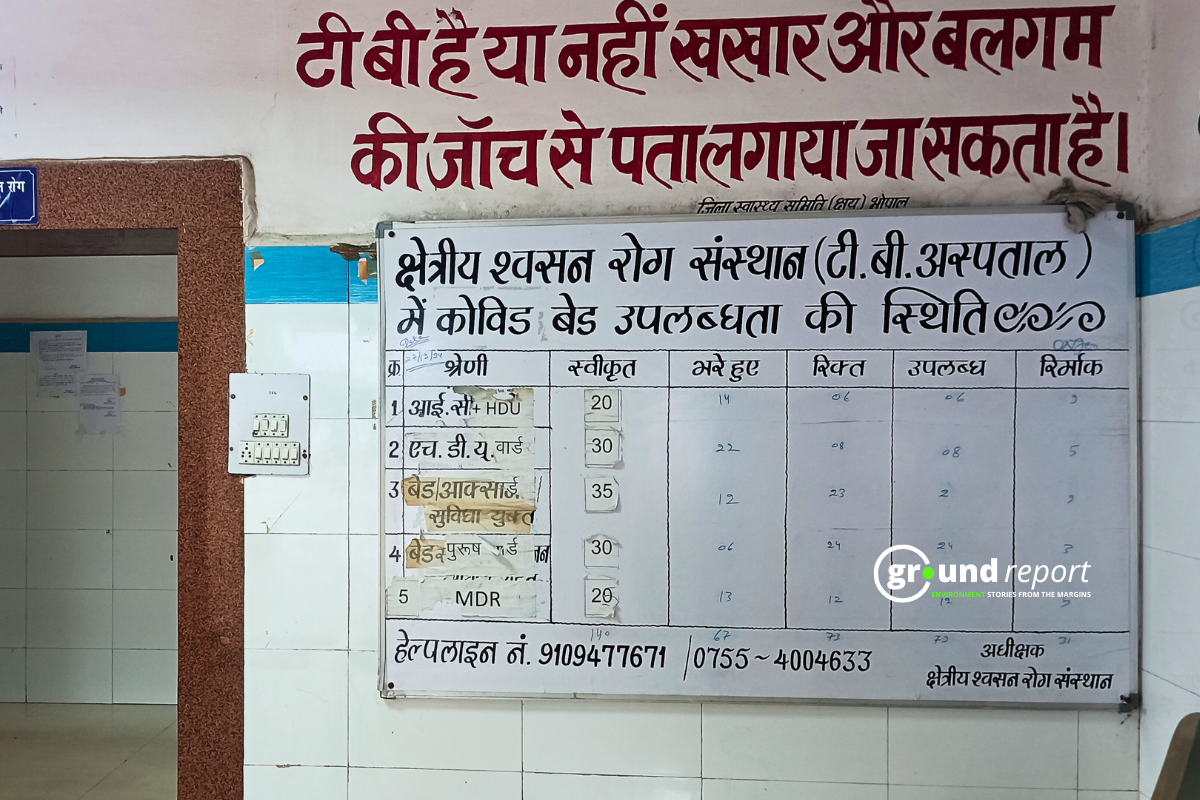 टी बी है या नहीं खखार और बलगम
की जॉच से पता लगाया जा सकता है।
जिला स्वास्थ्य समिति (क्षय) भोपाल
रोग
क्षेत्रीय श्वसन रोग संस्थान (टी.बी.अस्पताल)
में कोविड बेड उपलब्धता की स्थिति
27/12/24
क्र श्रेणी स्वीकृत भरे हुए रिक्त उपलब्ध रिर्माक
1 आई.सी + HDU 20 14 06 06
2 एच.डी.यू.वार्ड 30 22 08 08 5
3 बेड/आक्सीई. 35 12 23 2
सुविधा युक्त
4 बेड पुरूष र्ड 30 06 24 24 3
5 MDR 20 13 12 12
140 67 73 73 31
हेल्पलाइन नं. 9109477671 / 0755~4004633
अधीक्षक
क्षेत्रीय श्वसन रोग संस्थान
ground report
ENVIRONMENT STORIES FROM THE MARGINS